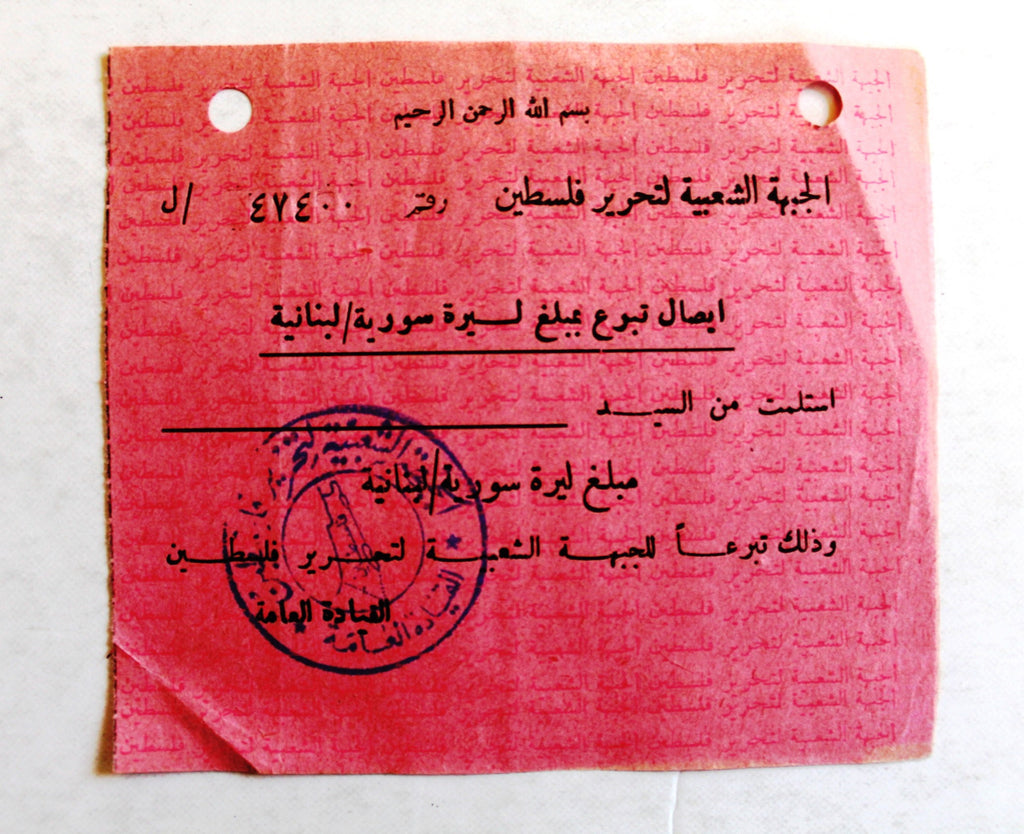 بسم الله الرحمن الرحيم
الجبهة الشعبية لتحرير فلسطين رقم ٤٧٤٠٠ /ل
ايصال تبرع بمبلغ لـــيرة سورية/لبنانية
استلمت من السيـــد
مبلغ ليرة سورية/لبنانية
وذلك تبرعـــاً للجبهـــة الشعبيـــة لتحـــرير فلســـطين
القيادة العامة
الجبهة الشعبية لتحرير فلسطين
القيادة العـامة